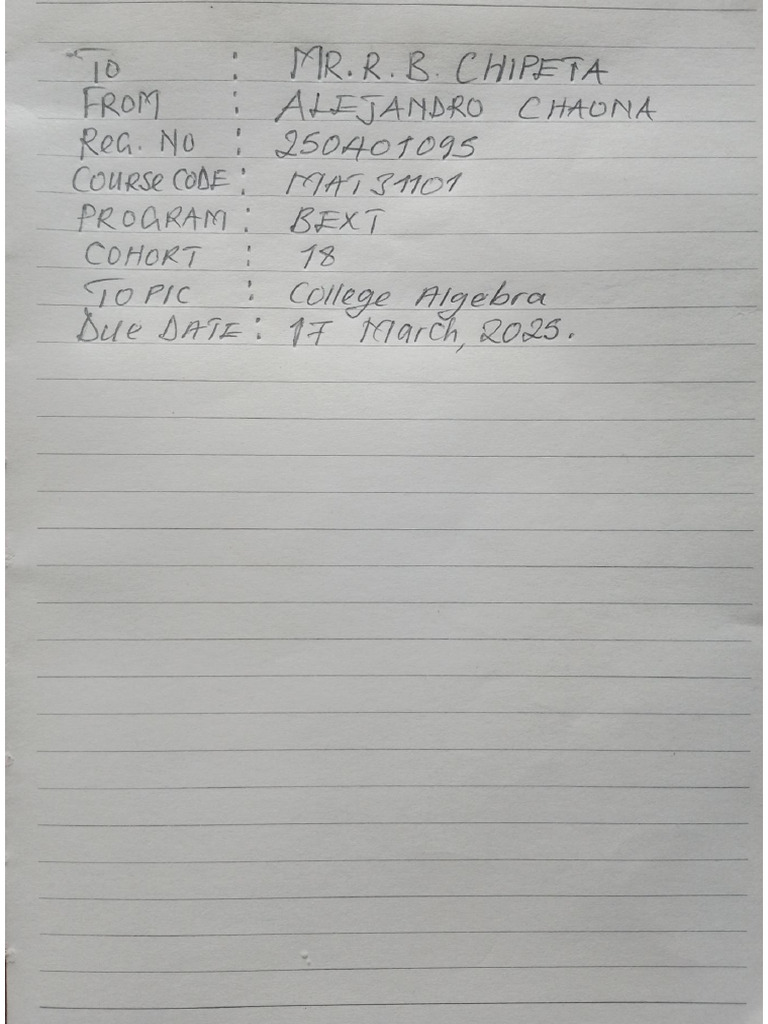 TO : MR. R. B. CHIPETA
FROM : ALEJANDRO CHAONA
ReG. NO : 250401095
COURSe CODE: MAT31101
PROGRAM: BEXT
COHORT : 18
TOPIC : College Algebra
Due DATE: 17 March, 2025.